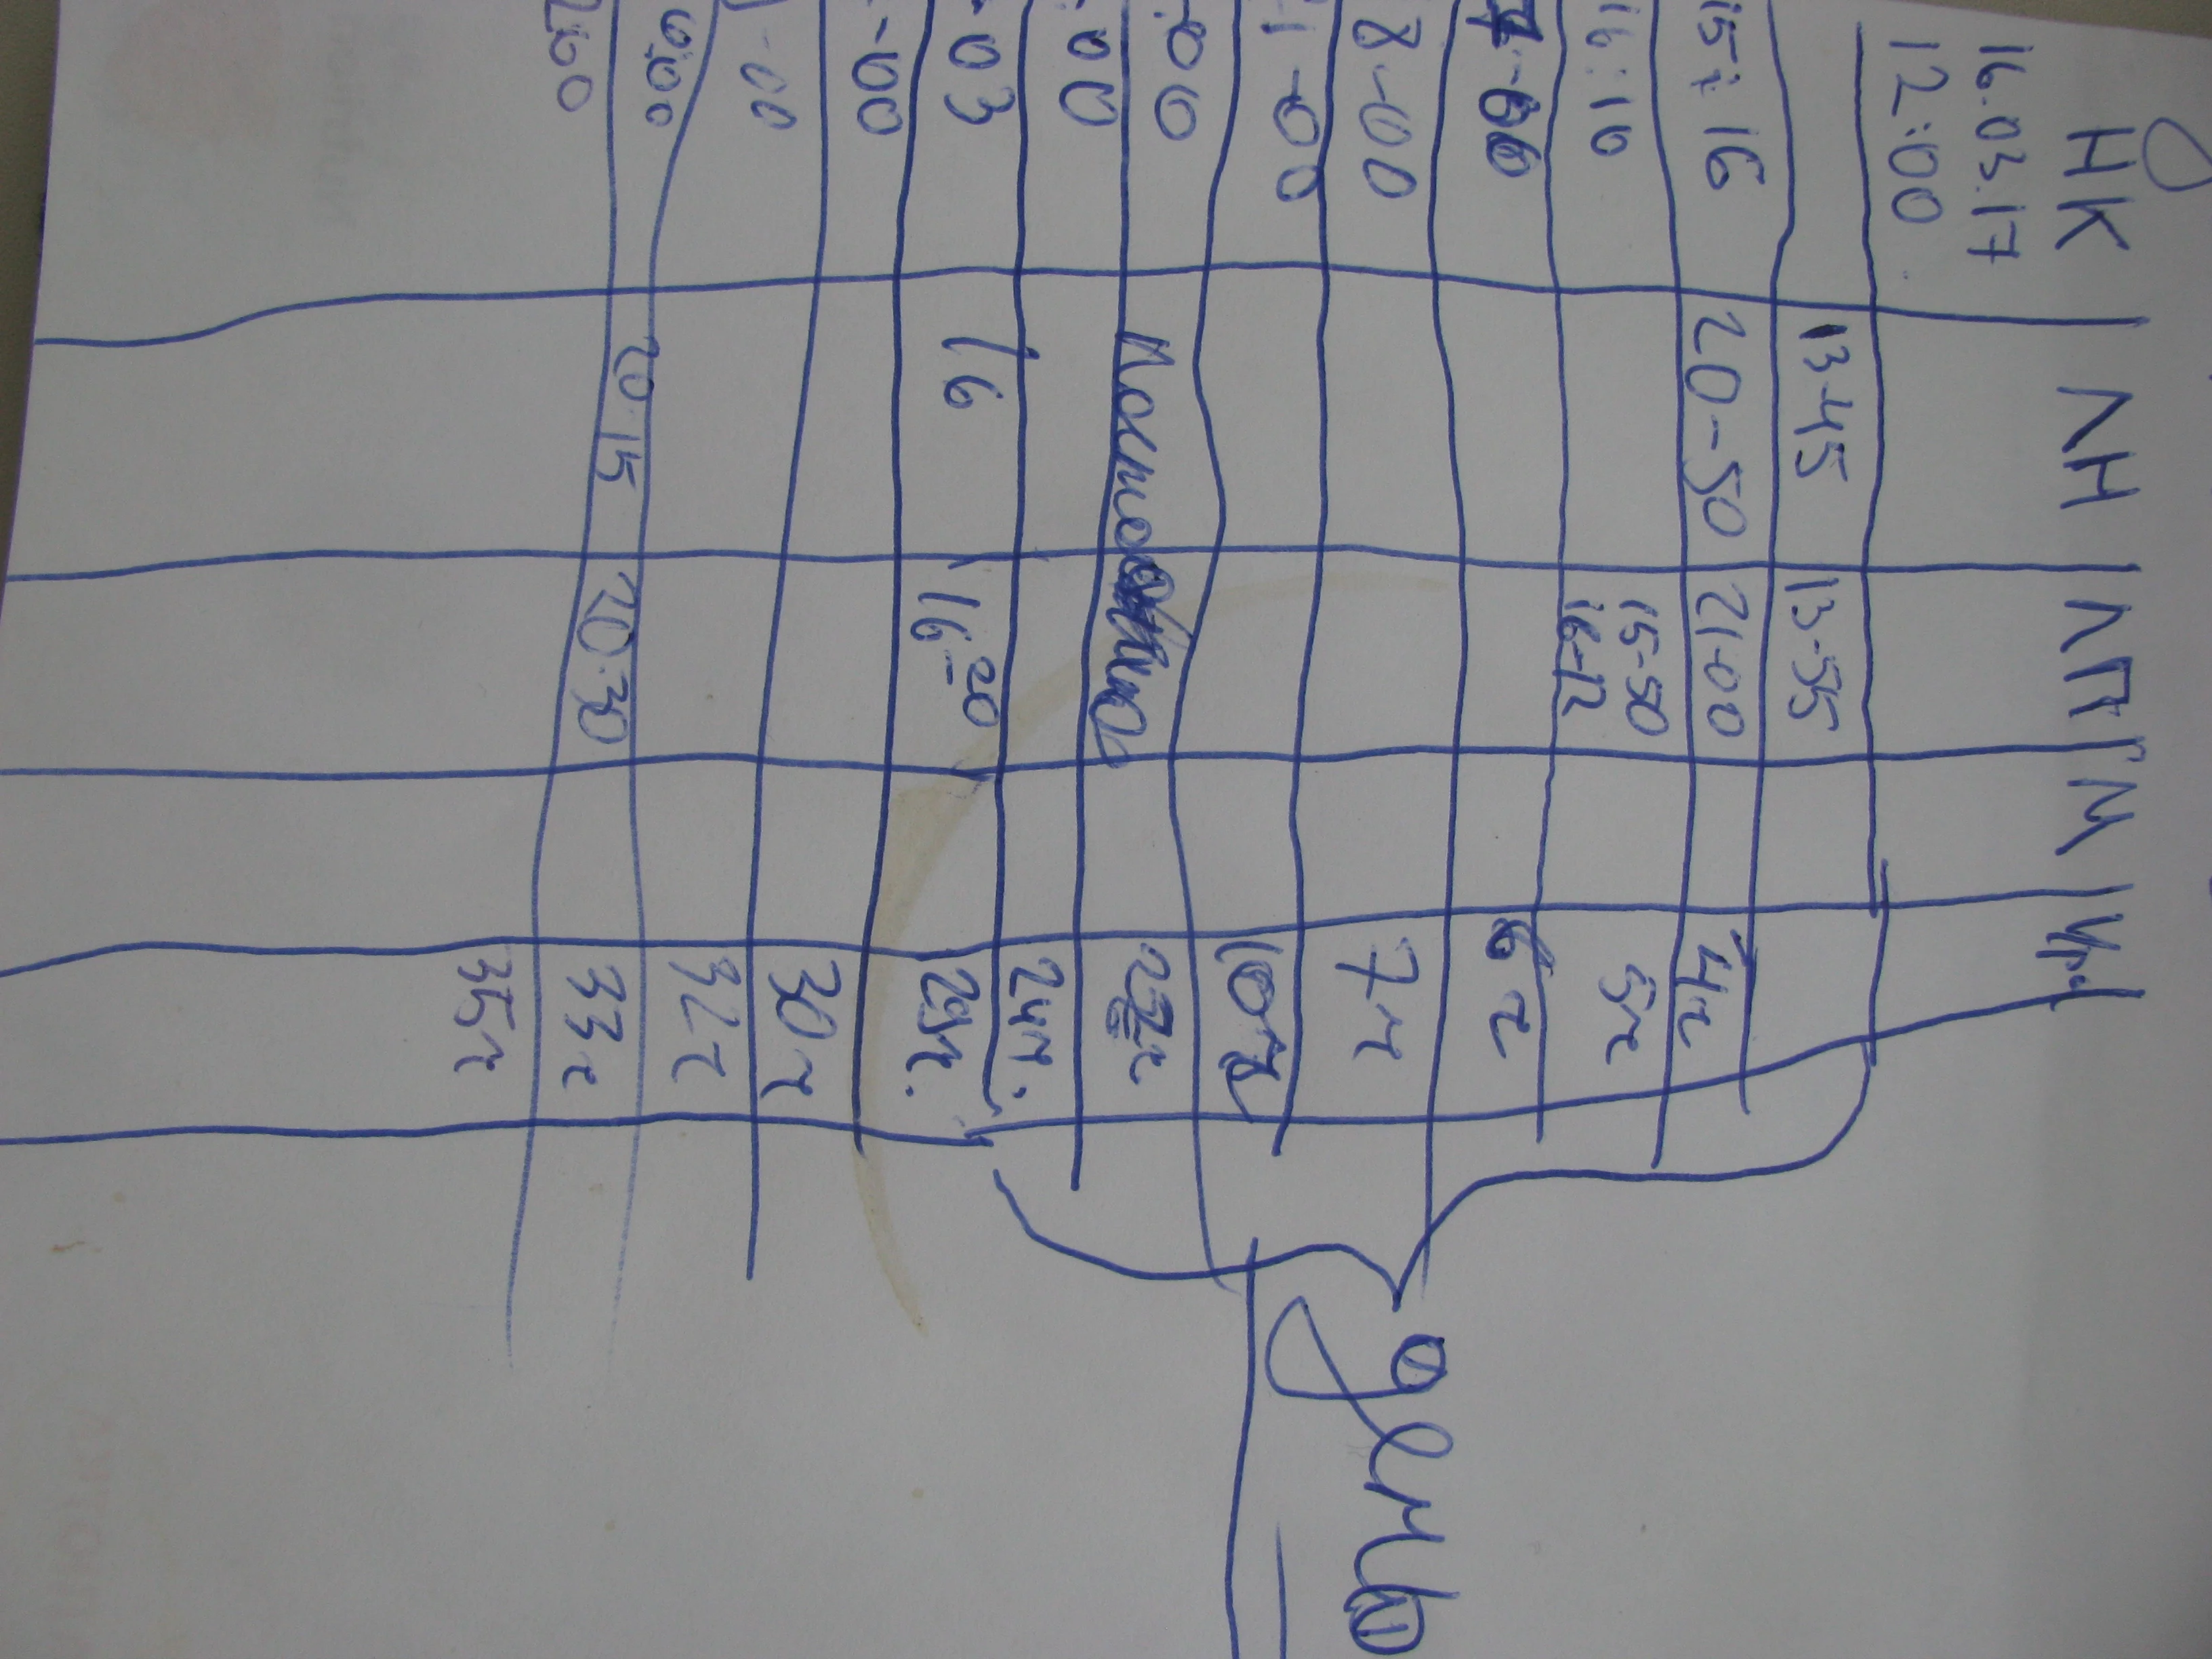 НК ЛН ЛП М
16.03.17
12:00
13-45 13-55
15:16 20-50 21-00 4г
16:10 15-50 5г
16-12
7-00 6г
8-00 7г
1-00 10г
:00 23г
:00 24г.
-03 16 16-20 29г.
-00 30г
-00 32г
0:00 20-15 20-30 33г
35г